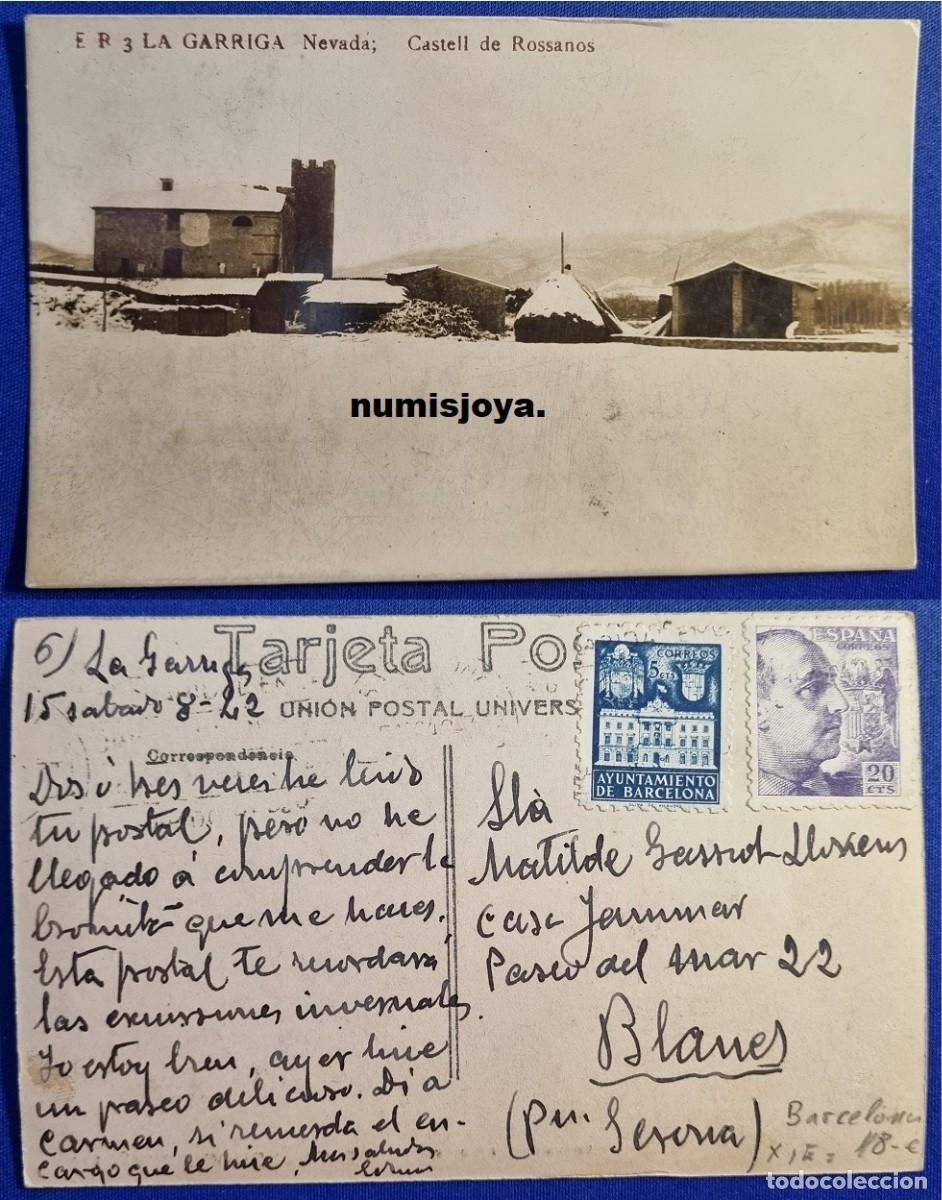 E R 3 LA GARRIGA Nevada; Castell de Rossanos
numisjoya.
Tarjeta Pos
6) La Garriga
15 sabado 8-42
UNIÓN POSTAL UNIVERS
Correspondencia
CORREOS
5 cts
AYUNTAMIENTO
DE BARCELONA
ESPAÑA
CORREOS
20
CTS
Dos ó tres veces he leido
tu postal, pero no he
llegado á comprender la
bromita que me haces.
Esta postal te recordará
las excursiones invernales.
Yo estoy bien, ayer hice
un paseo delicioso. Di a
Carmen, si recuerda el en-
cargo que le hice,
Matilde Gassiot
Casa
Paseo del Mar 22
Blanes
(Prv. Gerona)
Barcelona
18-€
todocoleccion